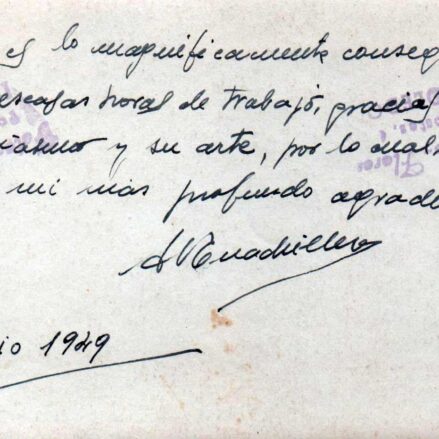 es lo magnificamente conseg
escasas horas de trabajo, gracias
iasmo y su arte, por lo cual
mi más profundo agrade
io 1949